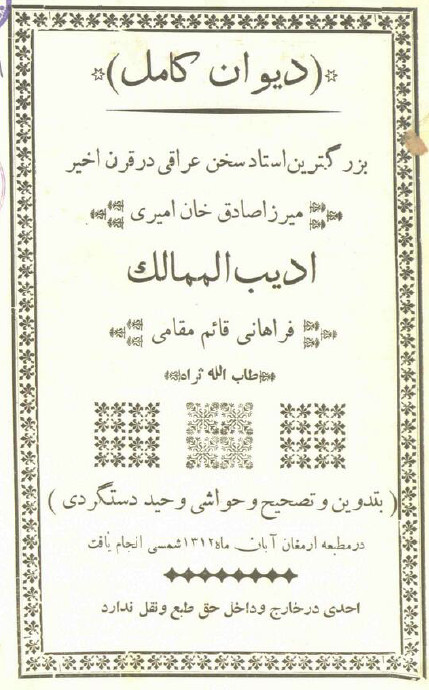 (دیوان کامل)
بزرگترین استاد سخن عراقی در قرن اخیر
میرزا صادق خان امیری
ادیب الممالک
فراهانی قائم مقامی
طاب الله ثراه
( بتدوین و تصحیح و حواشی وحید دستگردی )
در مطبعه ارمغان آبان ماه ۱۳۱۲ شمسی انجام یافت
احدی در خارج و داخل حق طبع و نقل ندارد